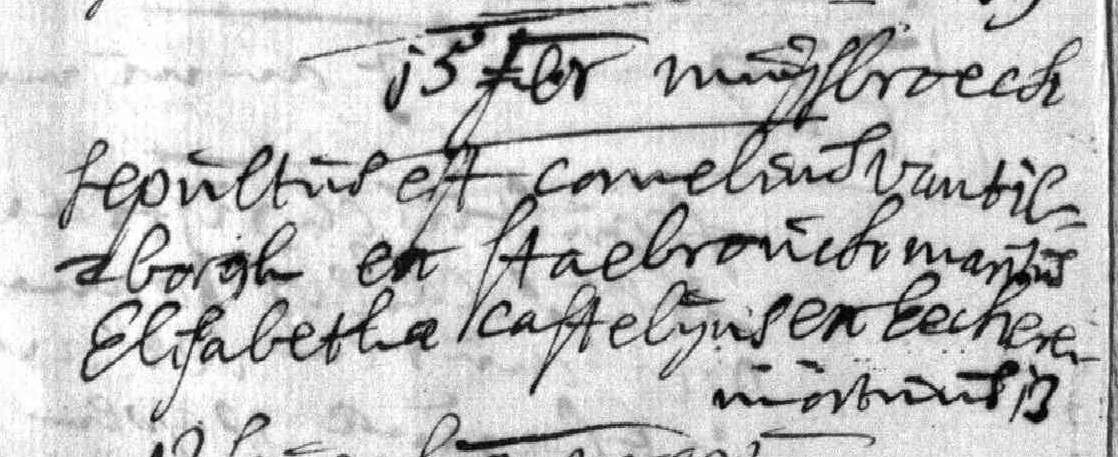 15 febr muijsbroeck
sepultus est cornelius van til-
dborgh ex staebrouck maritus
Elisabetha castelijns ex eeckeren
mortuus 13